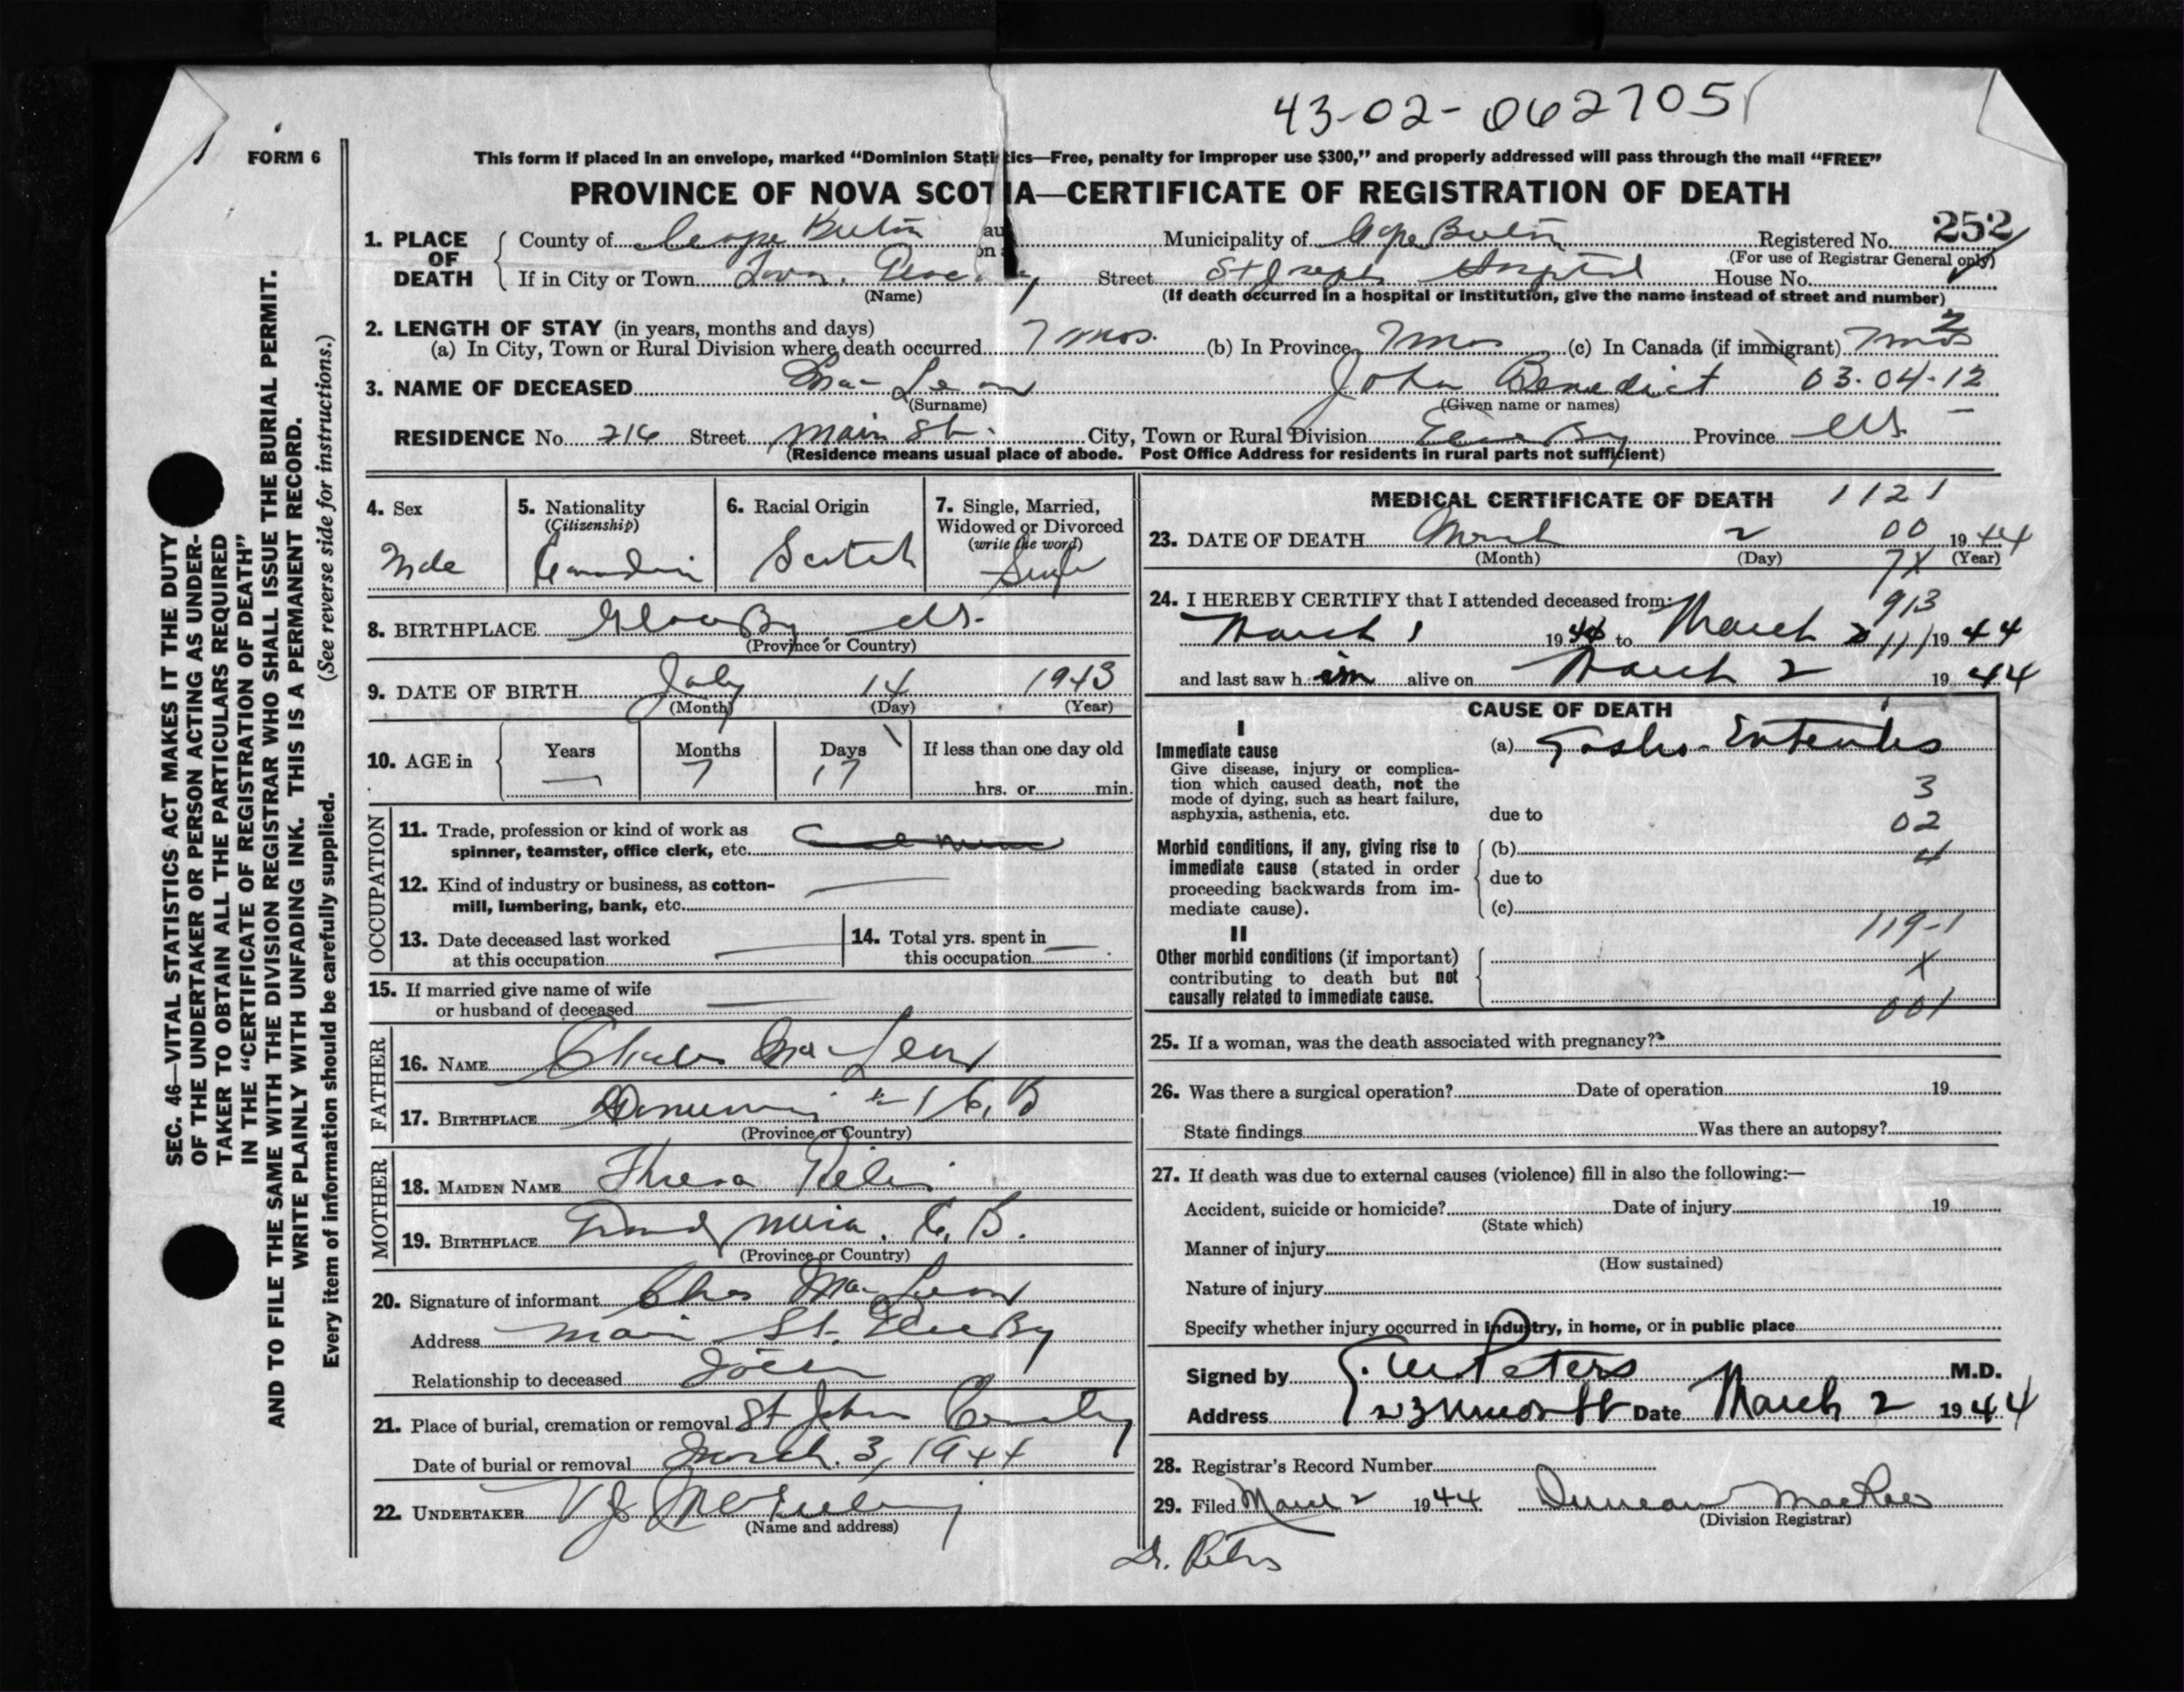 43-02-062705
FORM 6
This form if placed in an envelope, marked “Dominion Statistics—Free, penalty for improper use $300,” and properly addressed will pass through the mail “FREE”
PROVINCE OF NOVA SCOTIA—CERTIFICATE OF REGISTRATION OF DEATH
1. PLACE OF DEATH
County of Cape Breton Municipality of Cape Breton Registered No. 252
(For use of Registrar General only)
If in City or Town Street St Joseph Hospital House No.
(Name) (If death occurred in a hospital or institution, give the name instead of street and number)
2. LENGTH OF STAY (in years, months and days)
(a) In City, Town or Rural Division where death occurred 7 mos. (b) In Province 7 mos (c) In Canada (if immigrant) 7 mos 2
3. NAME OF DECEASED MacLean John Benedict 03-04-12
(Surname) (Given name or names)
RESIDENCE No. 216 Street Main St. City, Town or Rural Division Province NS
(Residence means usual place of abode. Post Office Address for residents in rural parts not sufficient)
4. Sex
Male
5. Nationality
(Citizenship)
Canadian
6. Racial Origin
Scotch
7. Single, Married,
Widowed or Divorced
(write the word)
Single
8. BIRTHPLACE Glace Bay NS.
(Province or Country)
9. DATE OF BIRTH July 14 1943
(Month) (Day) (Year)
10. AGE in Years Months Days If less than one day old
— 7 17 hrs. or min.
OCCUPATION
11. Trade, profession or kind of work as
spinner, teamster, office clerk, etc.
12. Kind of industry or business, as cotton-
mill, lumbering, bank, etc. —
13. Date deceased last worked
at this occupation —
14. Total yrs. spent in
this occupation —
15. If married give name of wife
or husband of deceased —
FATHER
16. NAME Charles MacLean
17. BIRTHPLACE C. B
(Province or Country)
MOTHER
18. MAIDEN NAME Theresa
19. BIRTHPLACE Grand Mira. C. B.
(Province or Country)
20. Signature of informant Chas MacLean
Address Main St. Glace Bay
Relationship to deceased Father
21. Place of burial, cremation or removal St Johns Cemetery
Date of burial or removal March. 3, 1944
22. UNDERTAKER V J
(Name and address)
MEDICAL CERTIFICATE OF DEATH 1121
23. DATE OF DEATH March 2 00 1944
(Month) (Day) (Year)
7X
24. I HEREBY CERTIFY that I attended deceased from:
913
March 1 1944 to March 2 111 1944
and last saw him alive on March 2 1944
CAUSE OF DEATH
I
Immediate cause
Give disease, injury or complica-
tion which caused death, not the
mode of dying, such as heart failure,
asphyxia, asthenia, etc.
(a) Gastro-Enteritis
3
due to
02
Morbid conditions, if any, giving rise to
immediate cause (stated in order
proceeding backwards from im-
mediate cause).
(b) 4
due to
(c)
119-1
II
Other morbid conditions (if important)
contributing to death but not
causally related to immediate cause.
X
001
25. If a woman, was the death associated with pregnancy?
26. Was there a surgical operation? Date of operation 19
State findings Was there an autopsy?
27. If death was due to external causes (violence) fill in also the following:—
Accident, suicide or homicide? Date of injury 19
(State which)
Manner of injury
(How sustained)
Nature of injury
Specify whether injury occurred in industry, in home, or in public place
Signed by Peters M.D.
Address Date March 2 1944
28. Registrar's Record Number
29. Filed March 2 1944 Duncan MacRae
(Division Registrar)
Dr. Peters
SEC. 46—VITAL STATISTICS ACT MAKES IT THE DUTY
OF THE UNDERTAKER OR PERSON ACTING AS UNDER-
TAKER TO OBTAIN ALL THE PARTICULARS REQUIRED
IN THE “CERTIFICATE OF REGISTRATION OF DEATH”
AND TO FILE THE SAME WITH THE DIVISION REGISTRAR WHO SHALL ISSUE THE BURIAL PERMIT.
WRITE PLAINLY WITH UNFADING INK. THIS IS A PERMANENT RECORD.
Every item of information should be carefully supplied. (See reverse side for instructions.)